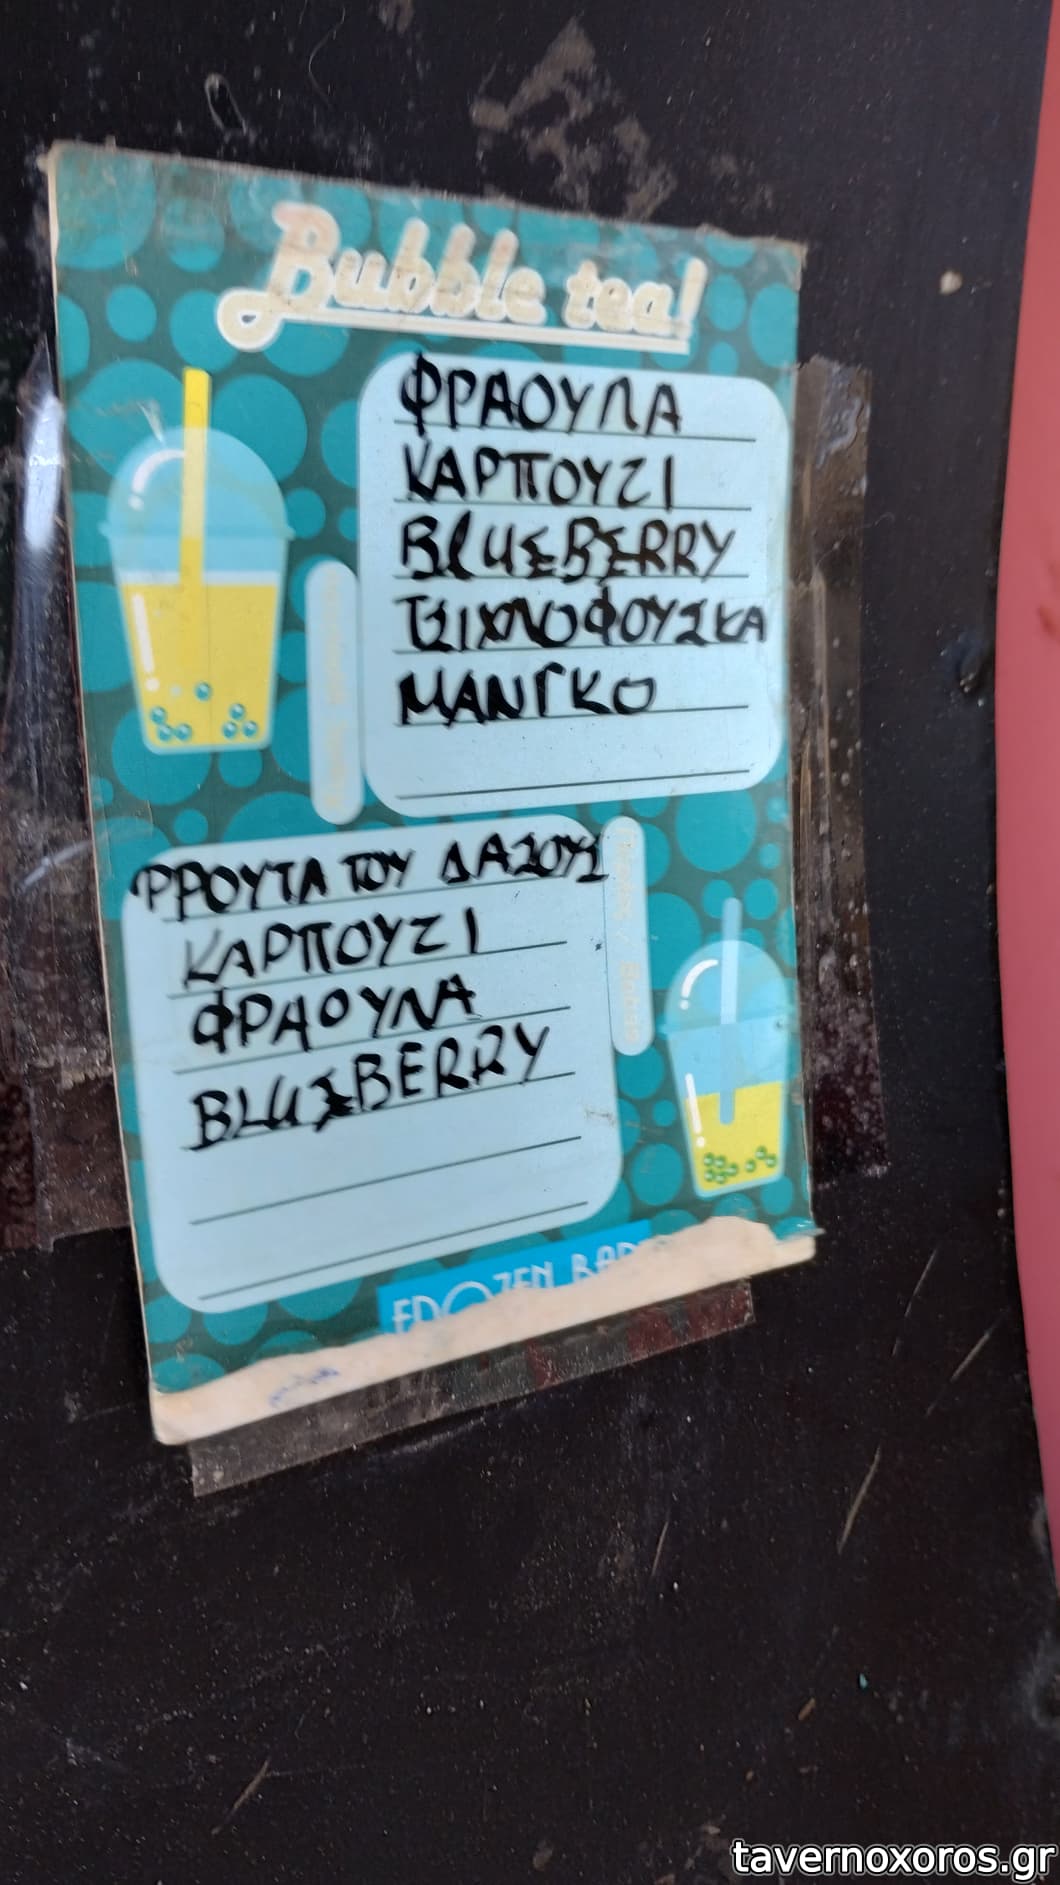 Bubble tea!
ΦΡΑΟΥΛΑ
ΚΑΡΠΟΥΖΙ
BlUEBERRY
ΤΣΙΧΛΟΦΟΥΣΚΑ
ΜΑΝΓΚΟ
ΦΡΟΥΤΑ ΤΟΥ ΔΑΣΟΥΣ
ΚΑΡΠΟΥΖΙ
ΦΡΑΟΥΛΑ
BLUEBERRY
FROZEN
tavernoxoros.gr